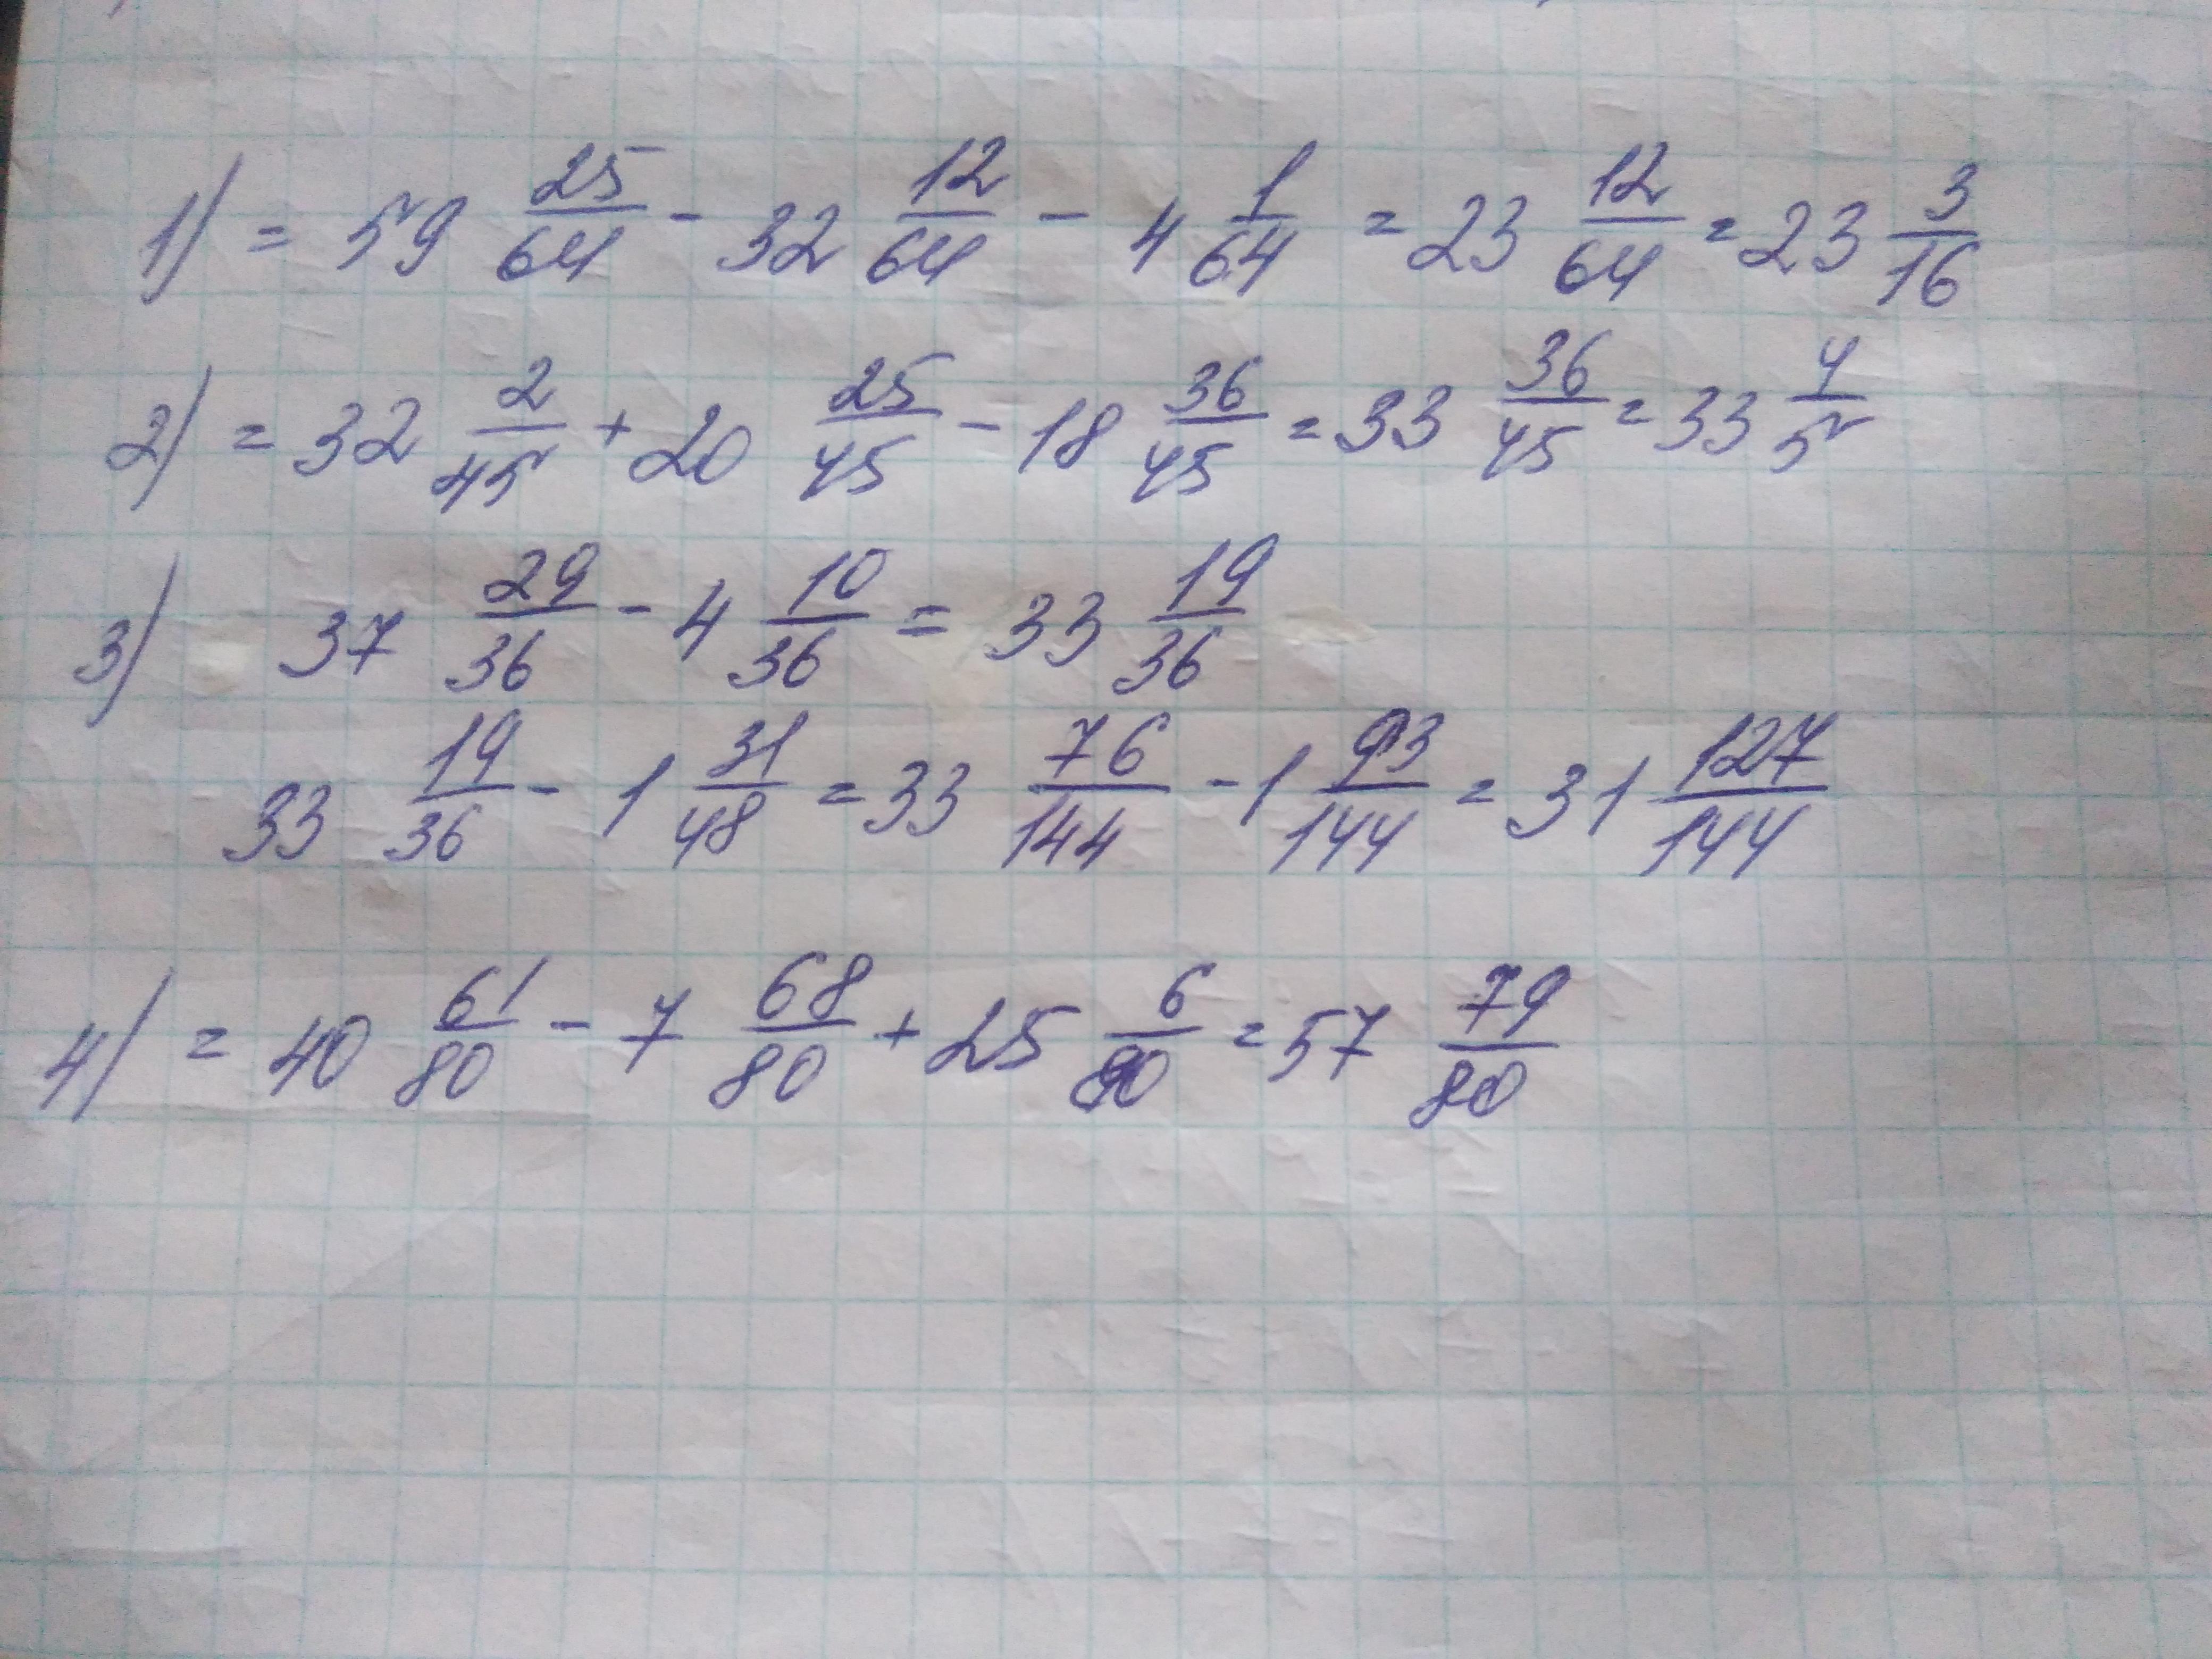 1) = 59 25/64 - 32 12/64 - 4 1/64 = 23 12/64 = 23 3/16
2) = 32 2/45 + 20 25/45 - 18 36/45 = 33 36/45 = 33 4/5
3) 37 29/36 - 4 10/36 = 33 19/36
33 19/36 - 1 31/48 = 33 76/144 - 1 93/144 = 31 127/144
4) = 40 61/80 - 7 68/80 + 25 6/80 = 57 79/80